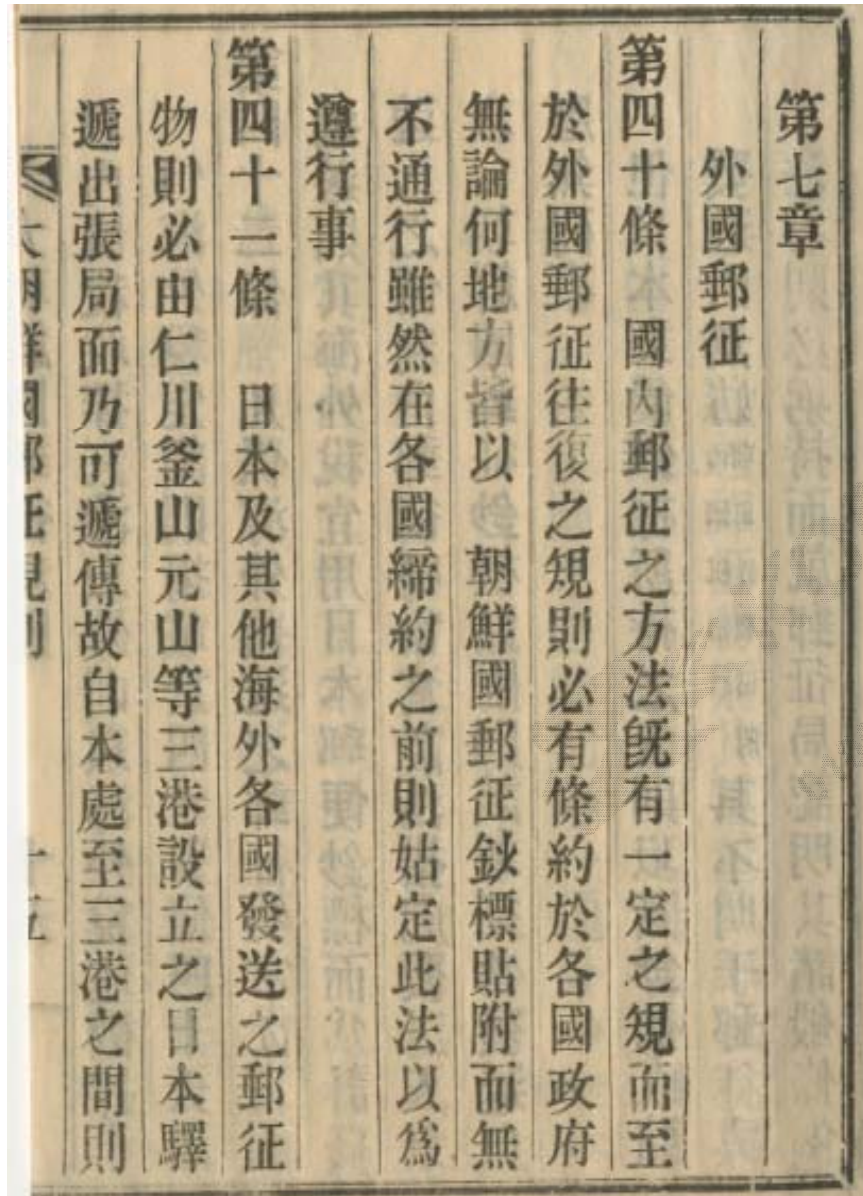 第七章
外國郵征
第四十條 國內郵征之方法旣有一定之規而至
於外國郵征往復之規則必有條約於各國政府
無論何地方皆以 朝鮮國郵征鈔標貼附而無
不通行雖然在各國締約之前則姑定此法以爲
遵行事
第四十一條 日本及其他海外各國發送之郵征
物則必由仁川釜山元山等三港設立之日本驛
遞出張局而乃可遞傳故自本處至三港之間則
大朝鮮國郵征規則 十五